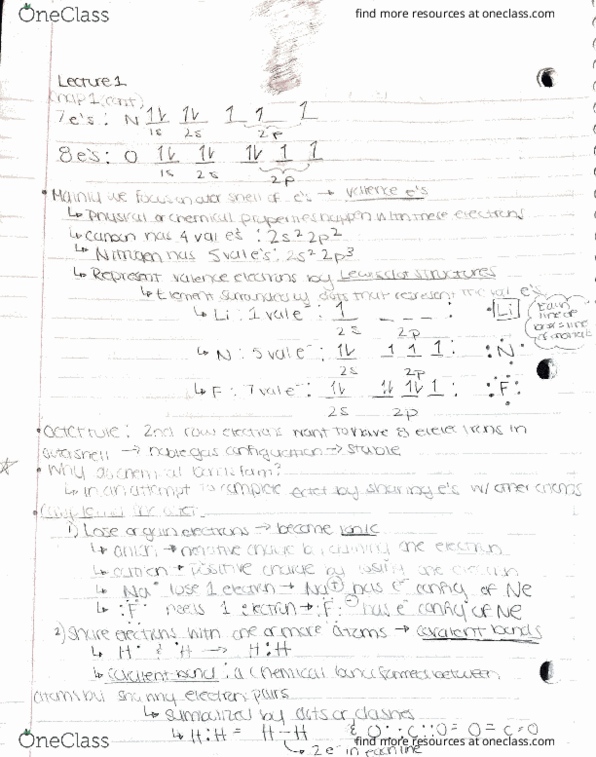 OneClass
find more resources at oneclass.com
Lecture 1
(Chap 1, cont)
7e's: N 1↿⇂ 1↿⇂ 1 1 1
1s 2s 2p
8e's: O 1↿⇂ 1↿⇂ 1↿⇂ 1 1
1s 2s 2p
• Mainly we focus on outer shell of e's → valence e's
↳ Physical or chemical properties happen with these electrons
↳ Carbon has 4 val e's: 2s² 2p²
↳ Nitrogen has 5 val e's: 2s² 2p³
↳ Represent valence electrons by Lewis dot structures
↳ Element surrounded by dots that represent the val e's
↳ Li: 1 val e⁻: 1 _ _ _ : ·Li
2s 2p
Each line of
↳ N: 5 val e⁻: 1↿⇂ 1 1 1 : :N·
2s 2p
↳ F: 7 val e⁻: 1↿⇂ 1↿⇂ 1↿⇂ 1 : :F·
2s 2p
• Octet rule: 2nd row electrons want to have 8 electrons in
outershell → noble gas configuration → stable
• Why do chemical bonds form?
↳ In an attempt to complete octet by sharing e's w/ other atoms
1) Lose or gain electrons → become ionic
↳ anion → negative charge by gaining one electron
↳ cation → positive charge by losing one electron
↳ Na· lose 1 electron → Na⊕ has e⁻ config of Ne
↳ :F· needs 1 electron → :F:⊖ has e⁻ config of Ne
2) Share electrons with one or more atoms → covalent bonds
↳ H· & ·H → H:H
↳ covalent bond: a chemical bond formed between
atoms by sharing electron pairs
↳ symbolized by dots or dashes
↳ H:H = H–H & O::C::O = O=C=O
↳ 2e⁻ in each line
OneClass
find more resources at oneclass.com